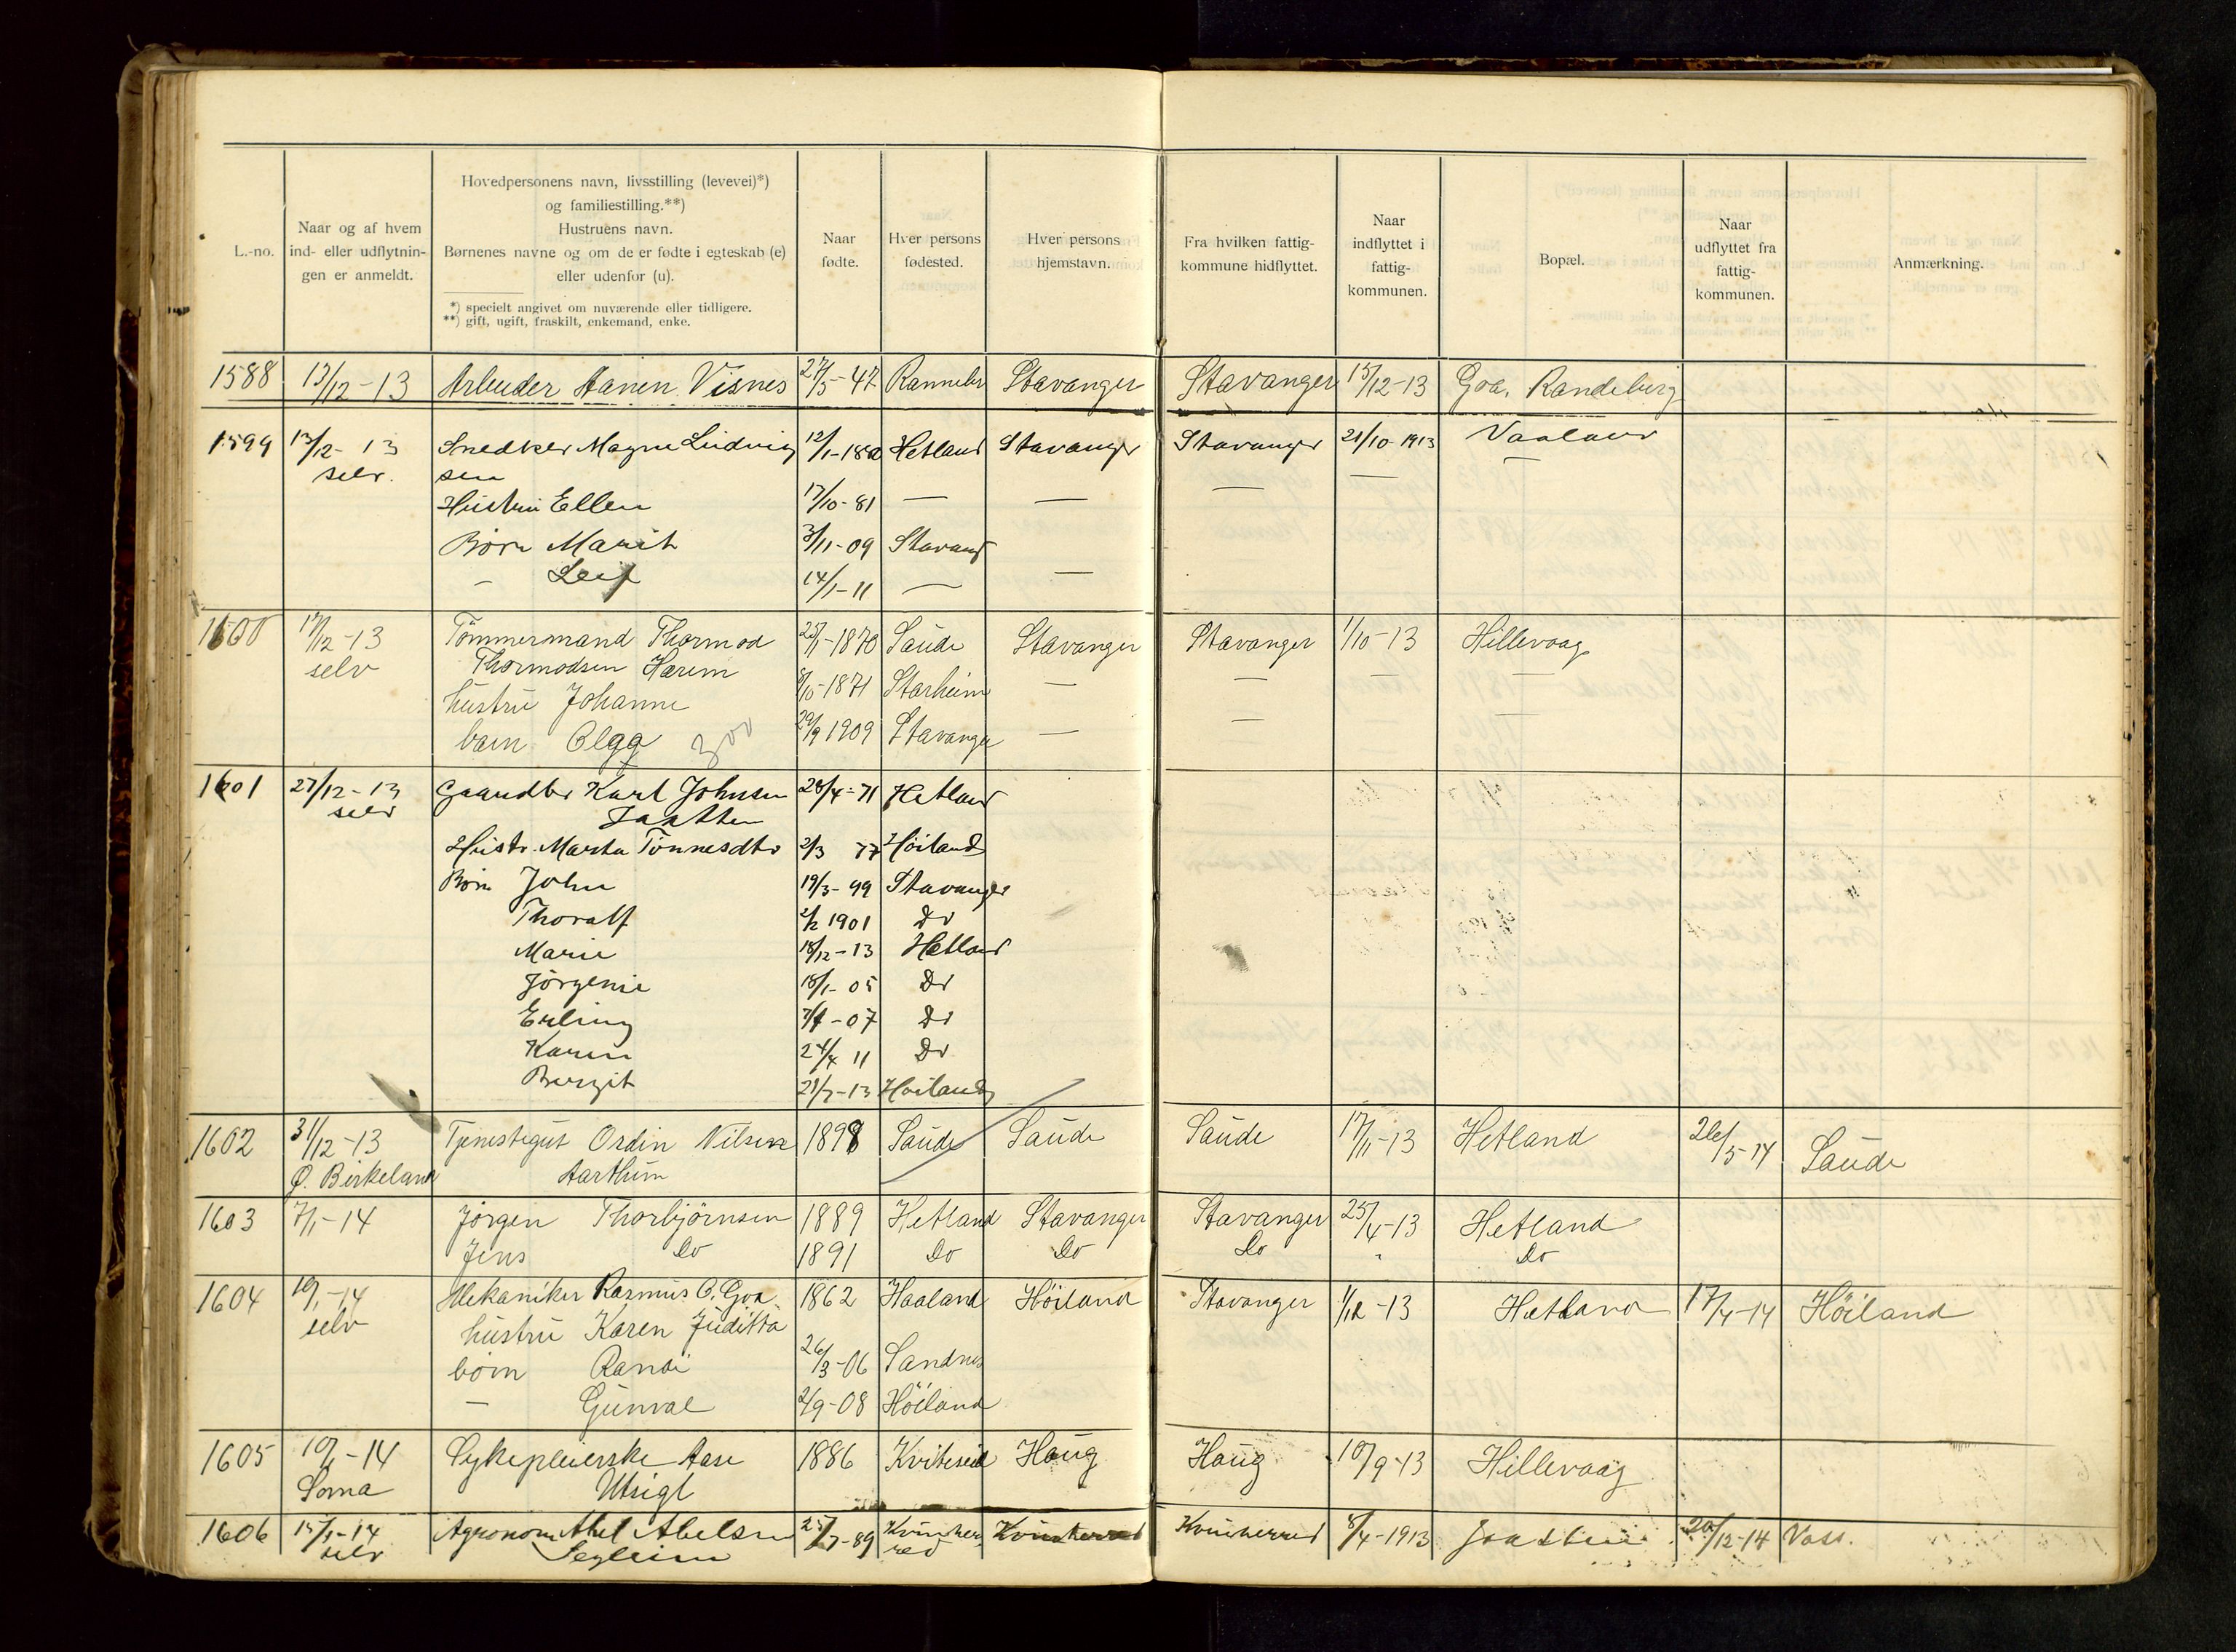 L.-no.
Naar og af hvem
ind- eller udflytnin-
gen er anmeldt.
Hovedpersonens navn, livsstilling (levevei)*)
og familiestilling.**)
Hustruens navn.
Børnenes navne og om de er fødte i egteskab (e)
eller udenfor (u).
*) specielt angivet om nuværende eller tidligere.
**) gift, ugift, fraskilt, enkemand, enke.
Naar
fødte.
Hver persons
fødested.
Hver persons
hjemstavn.
Fra hvilken fattig-
kommune hidflyttet.
Naar
indflyttet i
fattig-
kommunen.
Bopæl.
Naar
udflyttet fra
fattig-
kommunen.
Anmærkning.
1588 13/12-13 Arbeider Hanen Visnes 27/5-47 Stavanger Stavanger 15/12-13 Goa. Randeberg
1599 13/12-13 Snedker Magnu Ludvig 12/1-1880 Hetland Stavanger Stavanger 21/10-1913 Vaaland
selv. sen
Hustru Ellen 17/10-81 — — — — —
Børn Marit 3/11-09 Stavang
— Leif 14/1-11 — —
1600 17/12-13 Tömmermand Thormod 25/1-1870 Saude Stavanger Stavanger 1/10-13 Hillevaag
selv Thormodsen Harem
hustru Johanne 8/10-1871 Starheim — — — —
barn Olga 300 29/9 1909 Stavanger — — — —
1601 27/12-13 Gaardbr Karl Johnsen 28/4-71 Hetland
selv Jaatten
Hustr. Marta Tönnesdtr 2/3 77 Höiland
Børn John 19/3-99 Stavanger
Thoralf 2/2 1901 Do
Marie 18/12-13 Hetland
Jörgenie 18/1-05 Do
Erling 7/7-07 Do
Karen 24/4 11 Do
Bergit 21/7-13 Höiland
1602 31/12-13 Tjenestegut Ordin Nilsen 1898 Saude Saude Saude 17/11-13 Hetland 26/5-14 Saude
Ø. Birkeland Aarthun
1603 7/1-14 Jörgen Thorbjörnsen 1889 Hetland Stavanger Stavanger 25/4-13 Hetland
Jens Do 1891 Do Do Do " Do
1604 10/1-14 Mekaniker Rasmus O. Goa 1862 Haaland Höiland Stavanger 1/12-13 Hetland 17/4-14 Höiland
selv hustru Karen Juditta
börn Randi 26/3-06 Sandnes
— Gunval 2/9-08 Höiland
1605 10/1-14 Sykepleierske Aase 1886 Kviteseid Haug Haug 10/9-13 Hillevaag
Soma Utsigt
1606 15/1-14 Agronom Abel Abelsen 25/7-89 Kvinher- Kvinherred Kvinherred 8/4-1913 Jaatten 20/12-14 Voss.
selv red